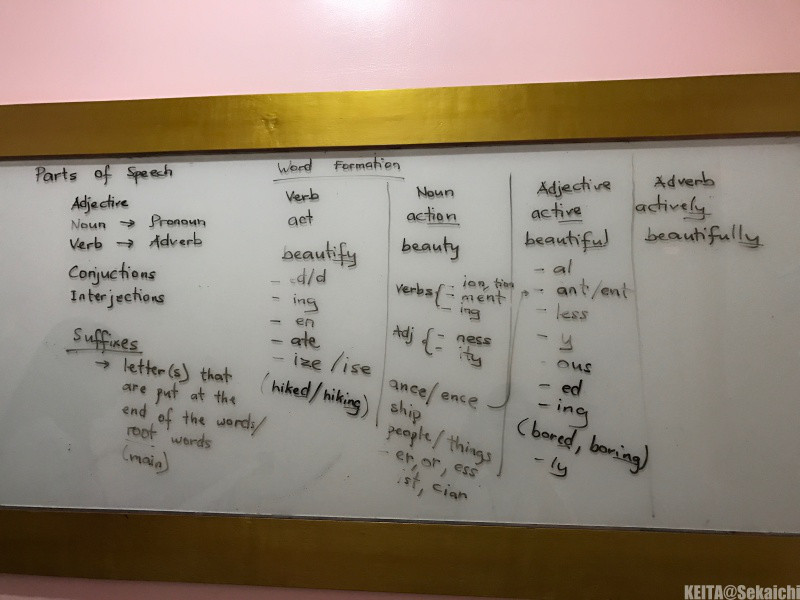 Parts of Speech
Adjective
Noun → Pronoun
Verb → Adverb
Conjuctions
Interjections
Suffixes
→ letter(s) that
are put at the
end of the words/
root words
(main)
Word Formation
Verb
act
beautify
- d/d
- ing
- en
- ate
- ize / ise
(hiked/hiking)
Noun
action
beauty
verbs { - ion, tion
- ment
- ing
Adj { - ness
- ity
ance/ence
ship
people/things
- er, or, ess
ist, cian
Adjective
active
beautiful
- al
- ant/ent
- less
- y
- ous
- ed
- ing
(bored, boring)
- ly
Adverb
actively
beautifully
KEITA@Sekaichi